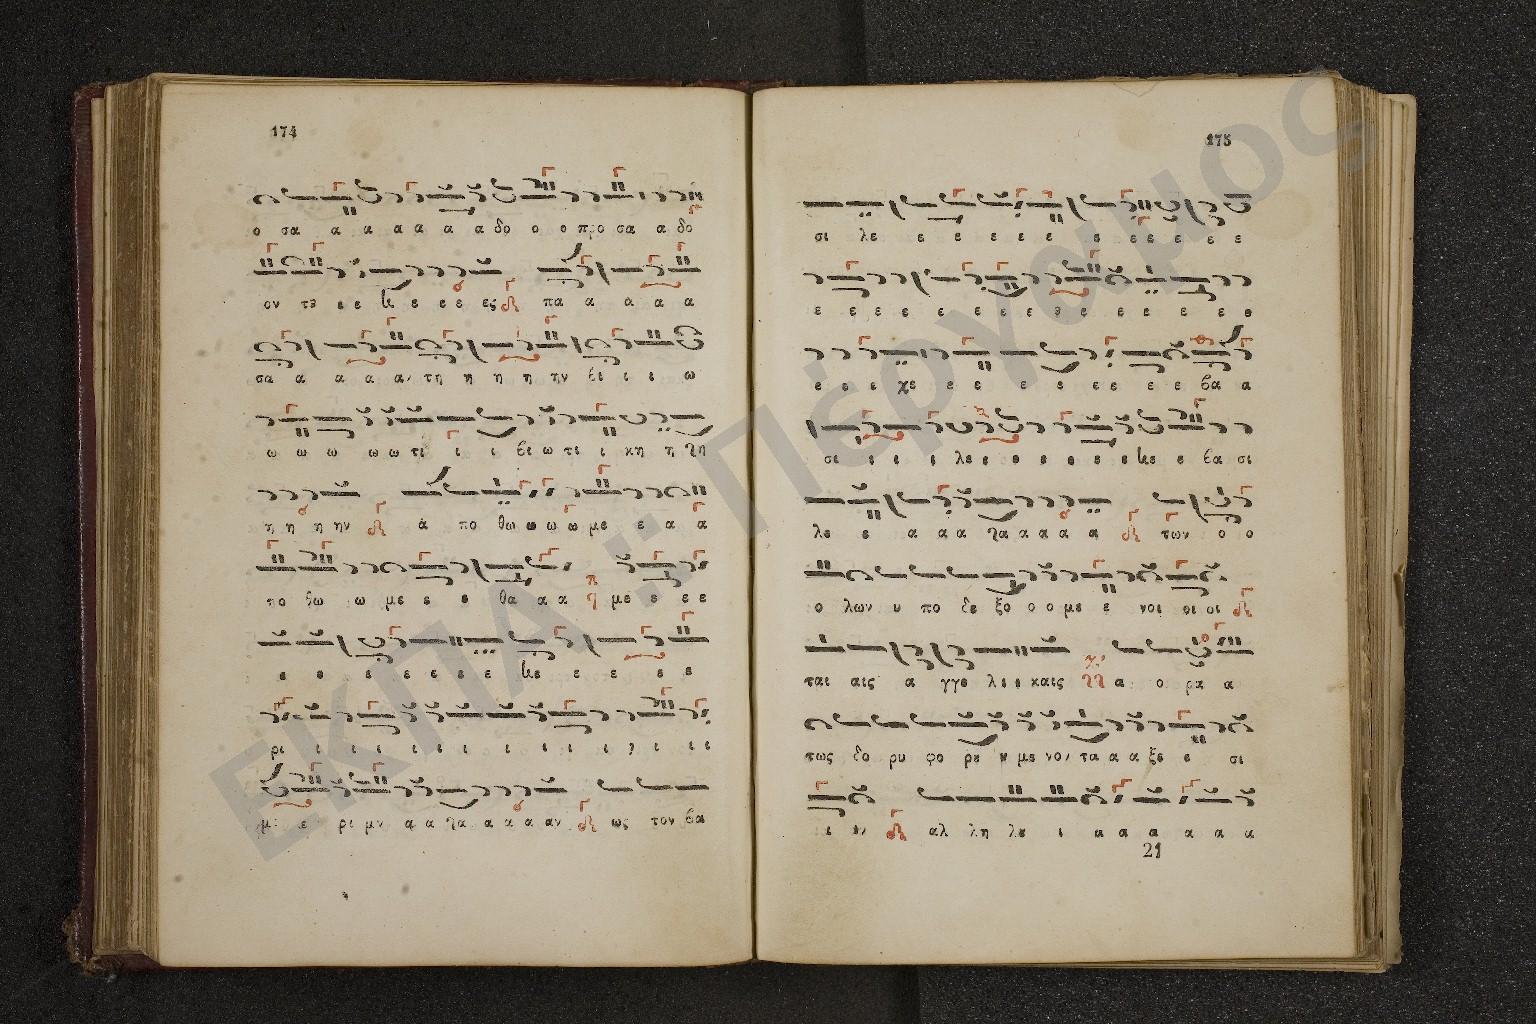 174
ο σα α α α α α α δο ο ο προ σα α δο
ον τε ε ε ε ε ε ε ες πα α α α α
σα α α α α τη η η η ην βι ι ι ω
ω ω ω ω ω τι ι ι βι ω τι ι κη η νη
η η η ην ά πο θω ω ω ω με ε α α
πο θω ω με ε ε θα α α με ε ε ε
ε ε ε ε ε ε ε ε ε ε ε
ρι ι ι ι ι ι ι ι ι ι ι ι ι
με ε ρι μν α α να α α α αν ως τον βα
175
σι λε ε ε ε ε ε ε ε ε ε ε ε
ε ε ε ε ε ε ε ε ε ε ε ε ε ε
ε ε ε χε ε ε ε ε ε ε ε ε βα α
σι ι ι ι λε ε ε ε ε ε ε ε βα σι
λε ε α α α να α α α α των ο ο
ο λων υ πο δε ξο ο ο με ε νοι οι οι
ται αις α γγε λι ι καις α ο ρα α
τως δο ρυ φο ρου ου με νον τα α α ξε ε σι
ι ιν αλ λη λου ι α α α α α α
21
ΕΚΠΑ :: Πέργαμος